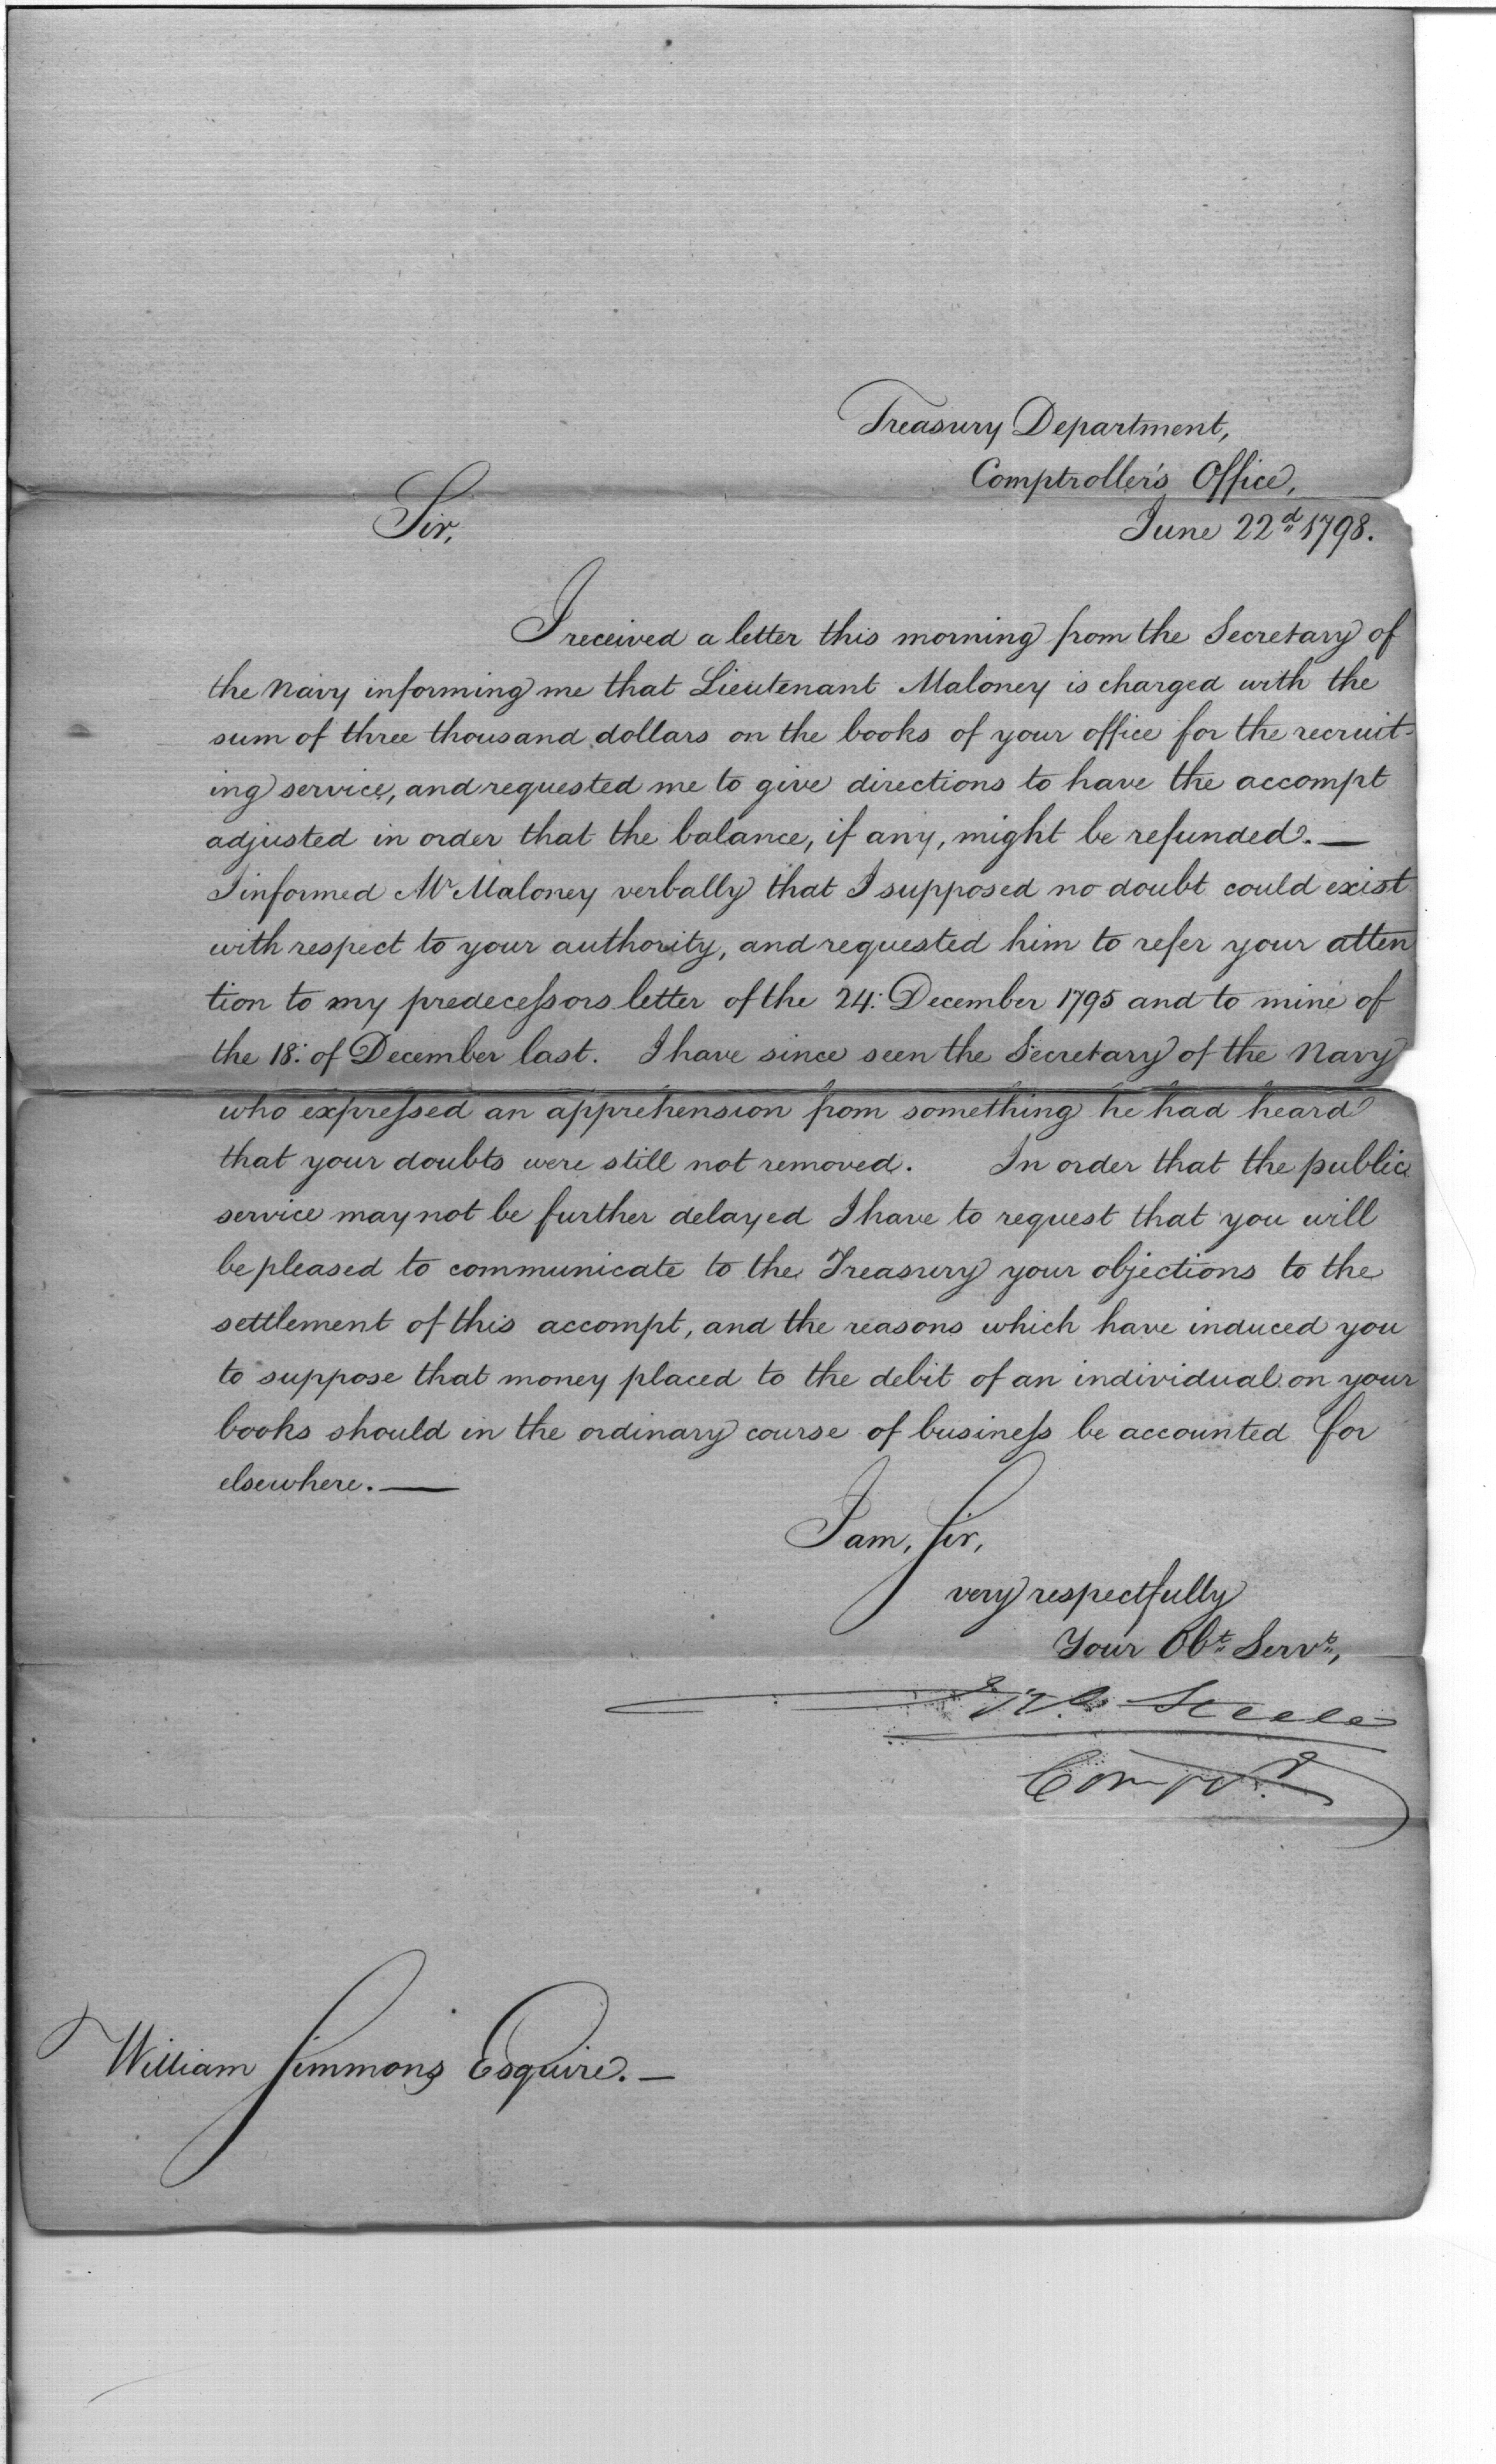 Treasury Department,
Comptroller's Office,
June 22d 1798.
Sir,
I received a letter this morning from the Secretary of
the Navy informing me that Lieutenant Maloney is charged with the
sum of three thousand dollars on the books of your office for the recruit-
ing service, and requested me to give directions to have the accompt
adjusted in order that the balance, if any, might be refunded. —
I informed Mr Maloney verbally that I supposed no doubt could exist
with respect to your authority, and requested him to refer your atten
tion to my predecessors letter of the 24: December 1795 and to mine of
the 18: of December last. I have since seen the Secretary of the Navy
who expressed an apprehension from something he had heard
that your doubts were still not removed. In order that the public
service may not be further delayed I have to request that you will
be pleased to communicate to the Treasury your objections to the
settlement of this accompt, and the reasons which have induced you
to suppose that money placed to the debit of an individual on your
books should in the ordinary course of business be accounted for
elsewhere. —
I am, Sir,
very respectfully
Your Obt Servt,
Jno. Steele
Compr.
William Simmons Esquire. —